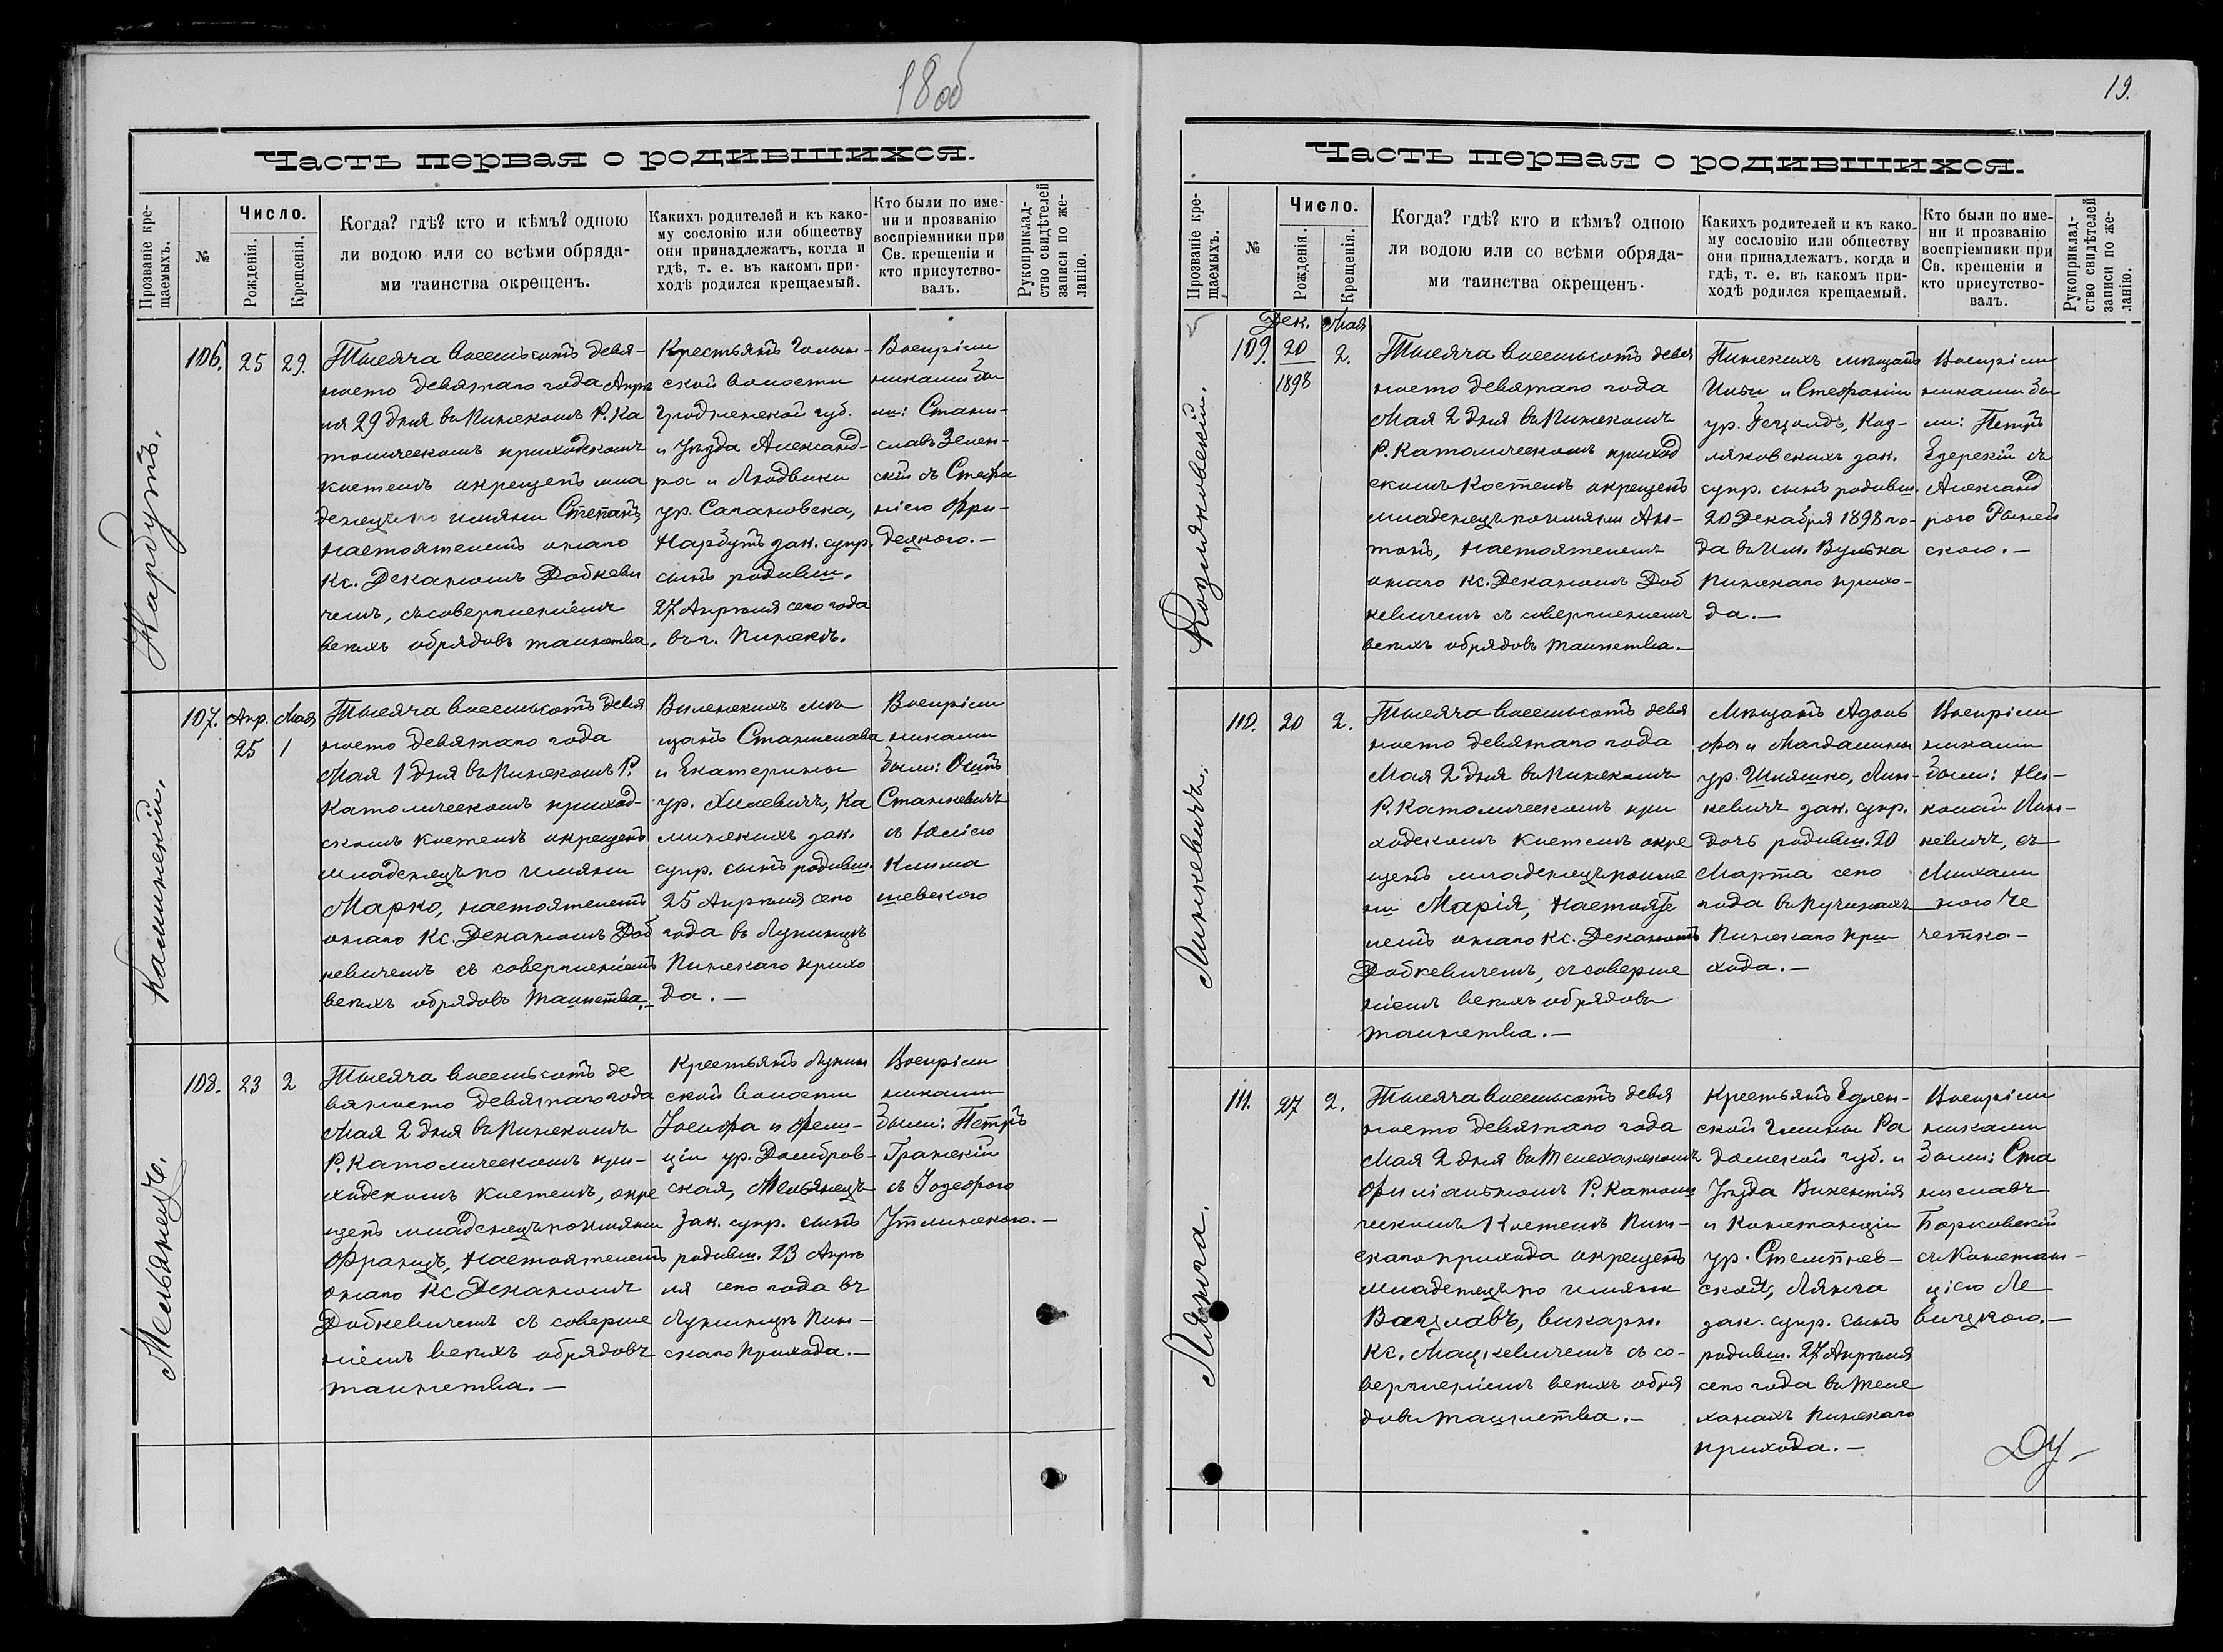 18 об
Часть первая о родившихся.
Прозваніе кре-
щаемыхъ.
№
Число.
Рожденія.
Крещенія.
Когда? гдѣ? кто и кѣмъ? одною
ли водою или со всѣми обряда-
ми таинства окрещенъ.
Какихъ родителей и къ како-
му сословію или обществу
они принадлежатъ, когда и
гдѣ, т. е. въ какомъ при-
ходѣ родился крещаемый.
Кто были по име-
ни и прозванію
воспріемники при
Св. крещеніи и
кто присутство-
валъ.
Рукоприклад-
ство свидѣтелей
записи по же-
ланію.
Нарбутъ.
106.
25
29.
Тысяча восемьсотъ девя-
носто девятаго года Апрѣ
ля 29 дня въ Пинскомъ Р. Ка
толическомъ приходскомъ
костелѣ окрещенъ мла
денецъ по имяни Степанъ,
настоятелемъ онаго
Кс. Деканомъ Добкеви
чемъ, съ совершеніемъ
всѣхъ обрядовъ таинства.
Крестьянъ
ской волости
Гродненской губ.
и Уѣзда Александ-
ра и Людвики
ур. Сапановска,
Нарбутъ зак. супр.
сынъ родивш.
27 Апрѣля сего года
въ г. Пинскѣ.
Воспріем
никами бы
ли: Стани-
славъ Зелен-
скій съ Стефа
ніею Фри-
децкого.—
Каминскій.
107.
Апр.
25
Мая
1
Тысяча восемьсотъ девя
носто девятаго года
Мая 1 дня въ Пинскомъ Р.
Католическомъ приход-
скомъ костелѣ окрещенъ
младенецъ по имяни
Марко, настоятелемъ
онаго Кс. Деканомъ Доб
кевичемъ съ совершеніемъ
всѣхъ обрядовъ таинства.—
Виленскихъ мѣ
щанъ Станислава
и Екатерины
ур. Хилевичъ, Ка
минскихъ зак.
супр. сынъ родивш.
25 Апрѣля сего
года въ Лунинцѣ
Пинскаго прихо
да.—
Воспріем
никами
были: Осипъ
Станкевичъ
съ Юліею
Клима
шевского
Мельянецъ.
108.
23
2
Тысяча восемьсотъ де
вяносто девятаго года
Мая 2 дня въ Пинскомъ
Р. Католическомъ при-
ходскомъ костелѣ, окре
щенъ младенецъ по имяни
Францъ, настоятелемъ
онаго Кс. Деканомъ
Добкевичемъ съ соверше
ніемъ всѣхъ обрядовъ
таинства.—
Крестьянъ Лунин
ской волости
Іосифа и Фели-
ціи ур. Домбров-
ская, Мельянецъ
Зак. супр. сынъ
родивш. 23 Апрѣ
ля сего года въ
Лунинцѣ Пин-
скаго прихода.—
Воспріем
никами
были: Петръ
Гранскій
съ Іозефою
19.
Часть первая о родившихся.
Прозваніе кре-
щаемыхъ.
№
Число.
Рожденія.
Крещенія.
Когда? гдѣ? кто и кѣмъ? одною
ли водою или со всѣми обряда-
ми таинства окрещенъ.
Какихъ родителей и къ како-
му сословію или обществу
они принадлежатъ. когда и
гдѣ, т. е. въ какомъ при-
ходѣ родился крещаемый.
Кто были по име-
ни и прозванію
воспріемники при
Св. крещеніи и
кто присутство-
валъ.
Рукоприклад-
ство свидѣтелей
записи по же-
ланію.
Козляковскій.
109.
Дек.
20
1898
Мая
2.
Тысяча восемьсотъ девя
носто девятаго года
Мая 2 дня въ Пинскомъ
Р. Католическомъ приход
скомъ костелѣ окрещенъ
младенецъ по имяни Ан-
тонъ, настоятелемъ
онаго Кс. Деканомъ Доб
кевичемъ съ совершеніемъ
всѣхъ обрядовъ таинства.—
Пинскихъ мѣщанъ
Ильи и Стефаніи
ур. Гецольдъ, Коз-
ляковскихъ зак.
супр. сынъ родивш.
20 Декабря 1898 го-
да въ им. Вулька
Пинскаго прихо-
да.—
Воспріем
никами бы
ли: Петръ
съ
Александ
рою
ского.—
Линкевичъ.
110.
20
2.
Тысяча восемьсотъ девя
носто девятаго года
Мая 2 дня въ Пинскомъ
Р. Католическомъ при
ходскомъ костелѣ окре
щенъ младенецъ по име
ни Марія, Настояте
лемъ онаго Кс. Деканомъ
Добкевичемъ, съ соверше
ніемъ всѣхъ обрядовъ
таинства.—
Мѣщанъ Адоль
фа и Магдалины
ур. Шляшко, Лин-
кевичъ зак. супр.
дочь родивш. 20
Марта сего
года въ Лучинахъ
Пинскаго при
хода.—
Воспріем
никами
были: Ни-
колай Лин-
кевичъ, съ
Михали
ною Че
четко-
Лянга.
111.
27
2.
Тысяча восемьсотъ девя
носто девятаго года
Мая 2 дня въ Телеханскомъ
Филіальномъ Р. Католи
ческомъ Костелѣ Пин-
скаго прихода окрещенъ
младенецъ по имяни
Вацлавъ, викарн.
Кс. Мацкевичемъ съ со-
вершеніемъ всѣхъ обря
довъ таинства.—
Крестьянъ Едлен-
ской Гмины Ра
домской губ. и
Уѣзда Викентія
и Констанціи
ур. Стемпнев-
ской, Лянга
зак. супр. сынъ
родивш. 27 Апрѣля
сего года въ Теле
ханахъ Пинскаго
прихода.—
Воспріем
никами
были: Ста
ниславъ
Борковскій
съ Констан-
ціею Ле
вицкого.—